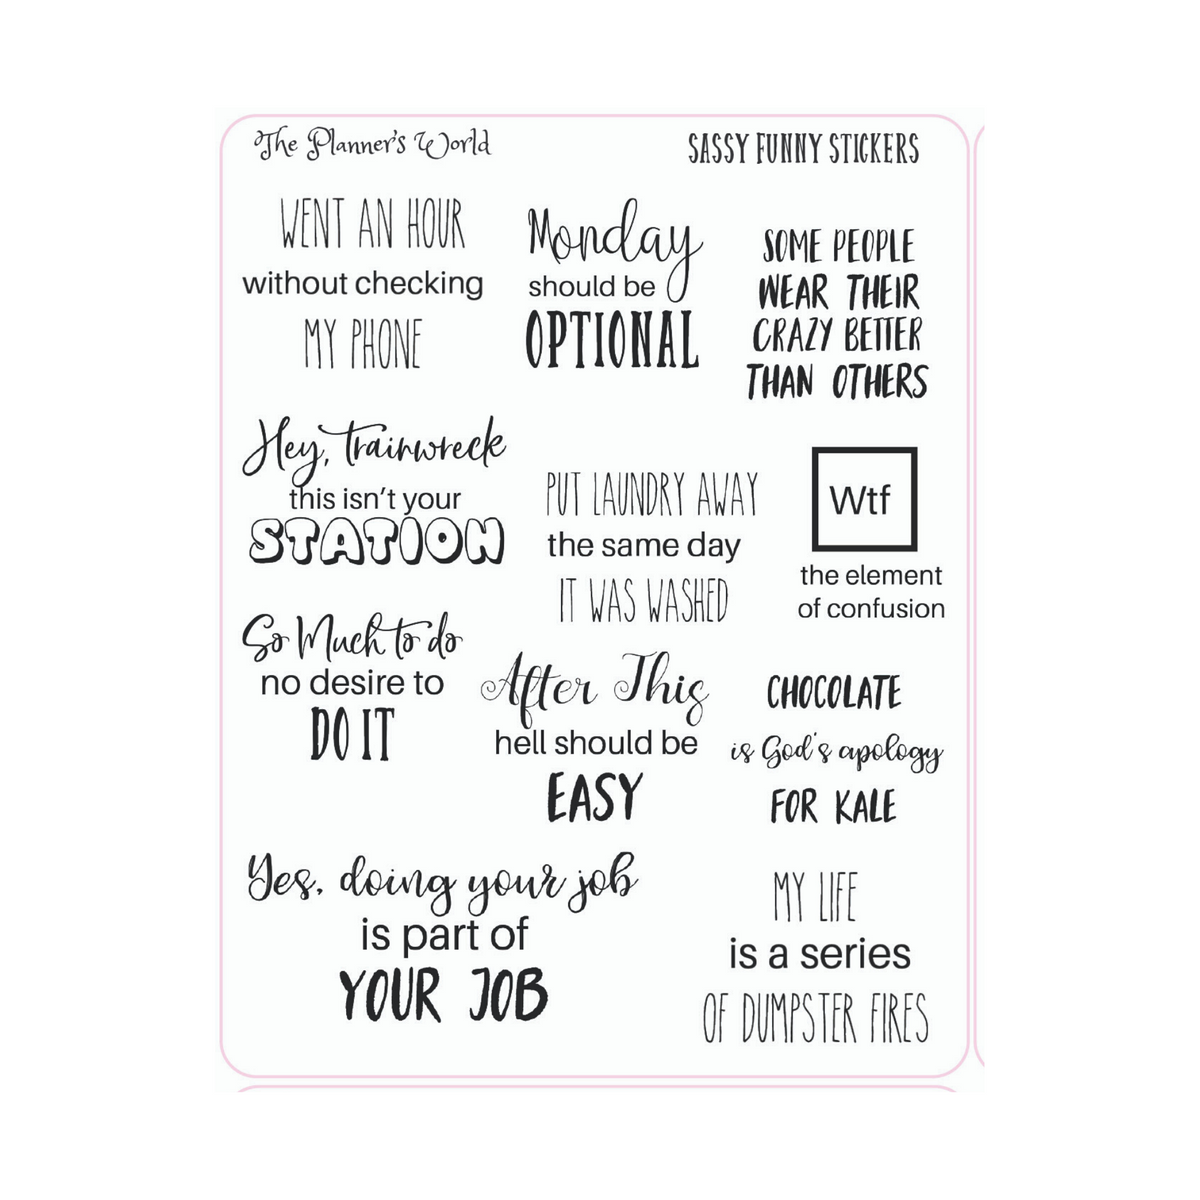 The Planner's World
SASSY FUNNY STICKERS
WENT AN HOUR
without checking
MY PHONE
Monday
should be
OPTIONAL
SOME PEOPLE
WEAR THEIR
CRAZY BETTER
THAN OTHERS
Hey, trainwreck
this isn't your
STATION
PUT LAUNDRY AWAY
the same day
IT WAS WASHED
Wtf
the element
of confusion
So Much to do
no desire to
DO IT
After This
hell should be
EASY
CHOCOLATE
is God's apology
FOR KALE
Yes, doing your job
is part of
YOUR JOB
MY LIFE
is a series
OF DUMPSTER FIRES